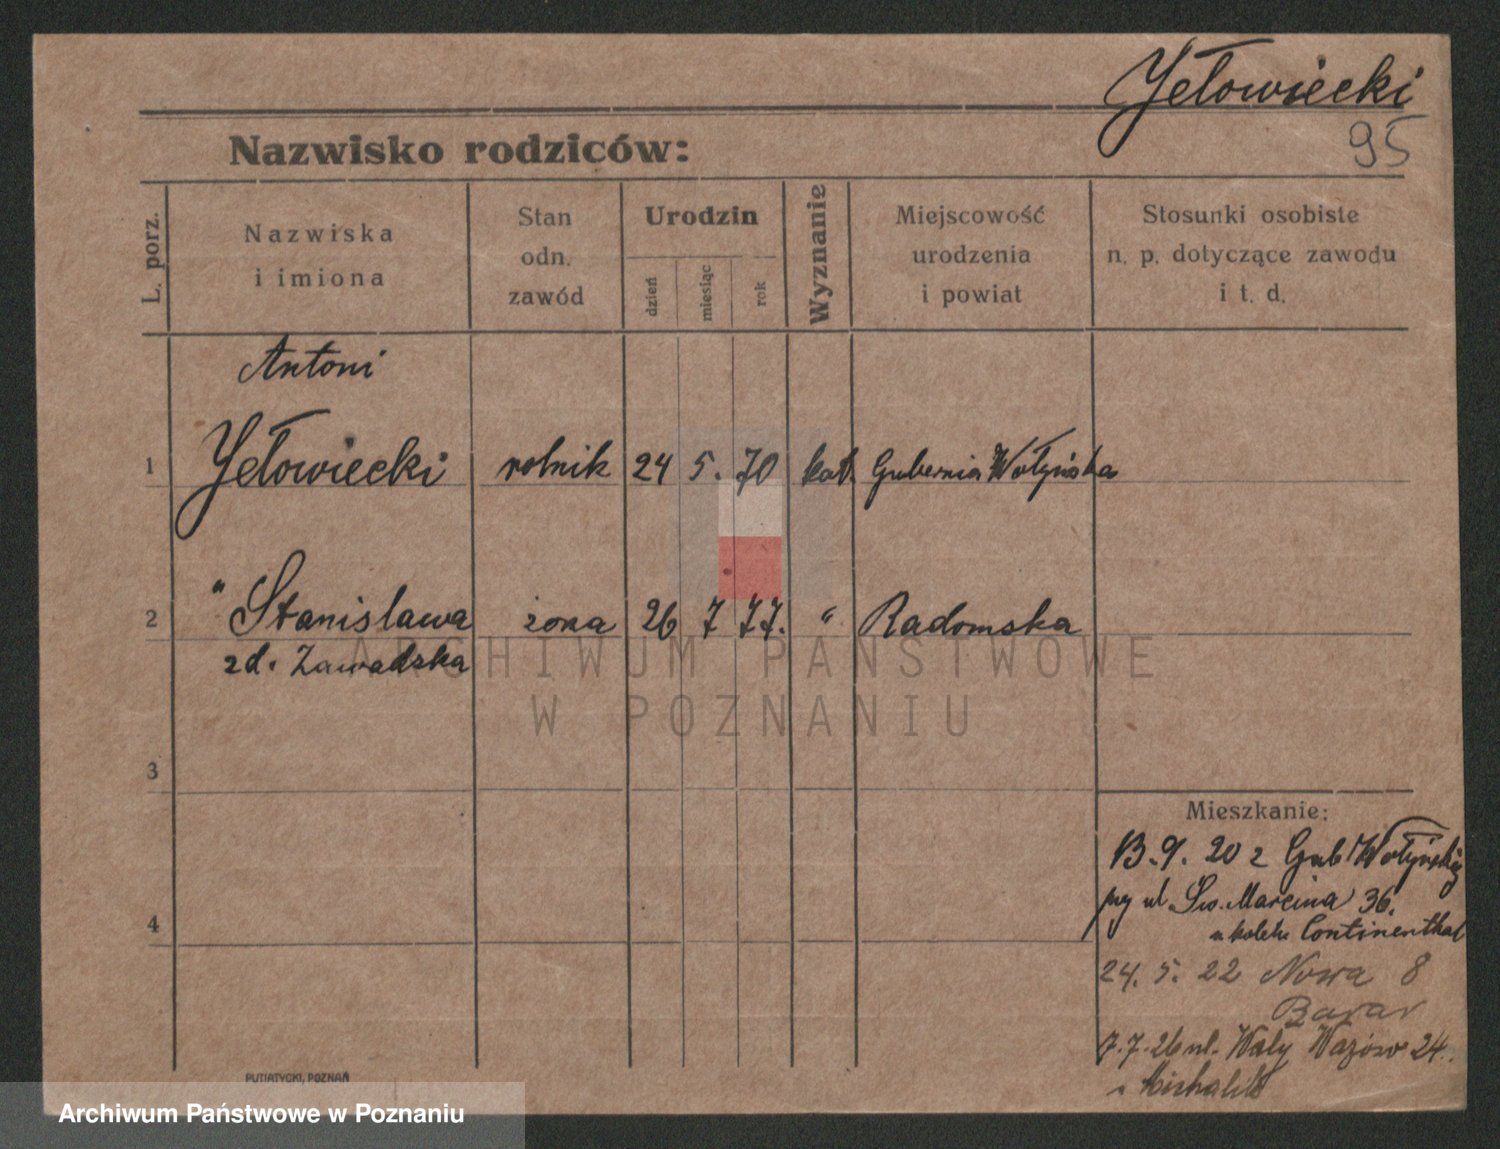 Jełowiecki
95
Nazwisko rodziców:
L. porz.
Nazwiska
i imiona
Stan
odn.
zawód
Urodzin
dzień
miesiąc
rok
Wyznanie
Miejscowość
urodzenia
i powiat
Stosunki osobiste
n. p. dotyczące zawodu
i t. d.
Antoni
1 Jełowiecki rolnik 24 5. 70 kat. Gubernia Wołyńska
2 " Stanisława żona 26 7 77. " Radomska
zd. Zawadzka
ARCHIWUM PAŃSTWOWE
W POZNANIU
3
4
Mieszkanie:
13.9.20 z Gub Wołyńskiej
przy ul. Św. Marcina 36.
Continenthal
24. 5. 22 Nowa 8
Bazar
7.7.26 ul. Wały Wazów 24.
PUTIATYCKI, POZNAŃ
Archiwum Państwowe w Poznaniu